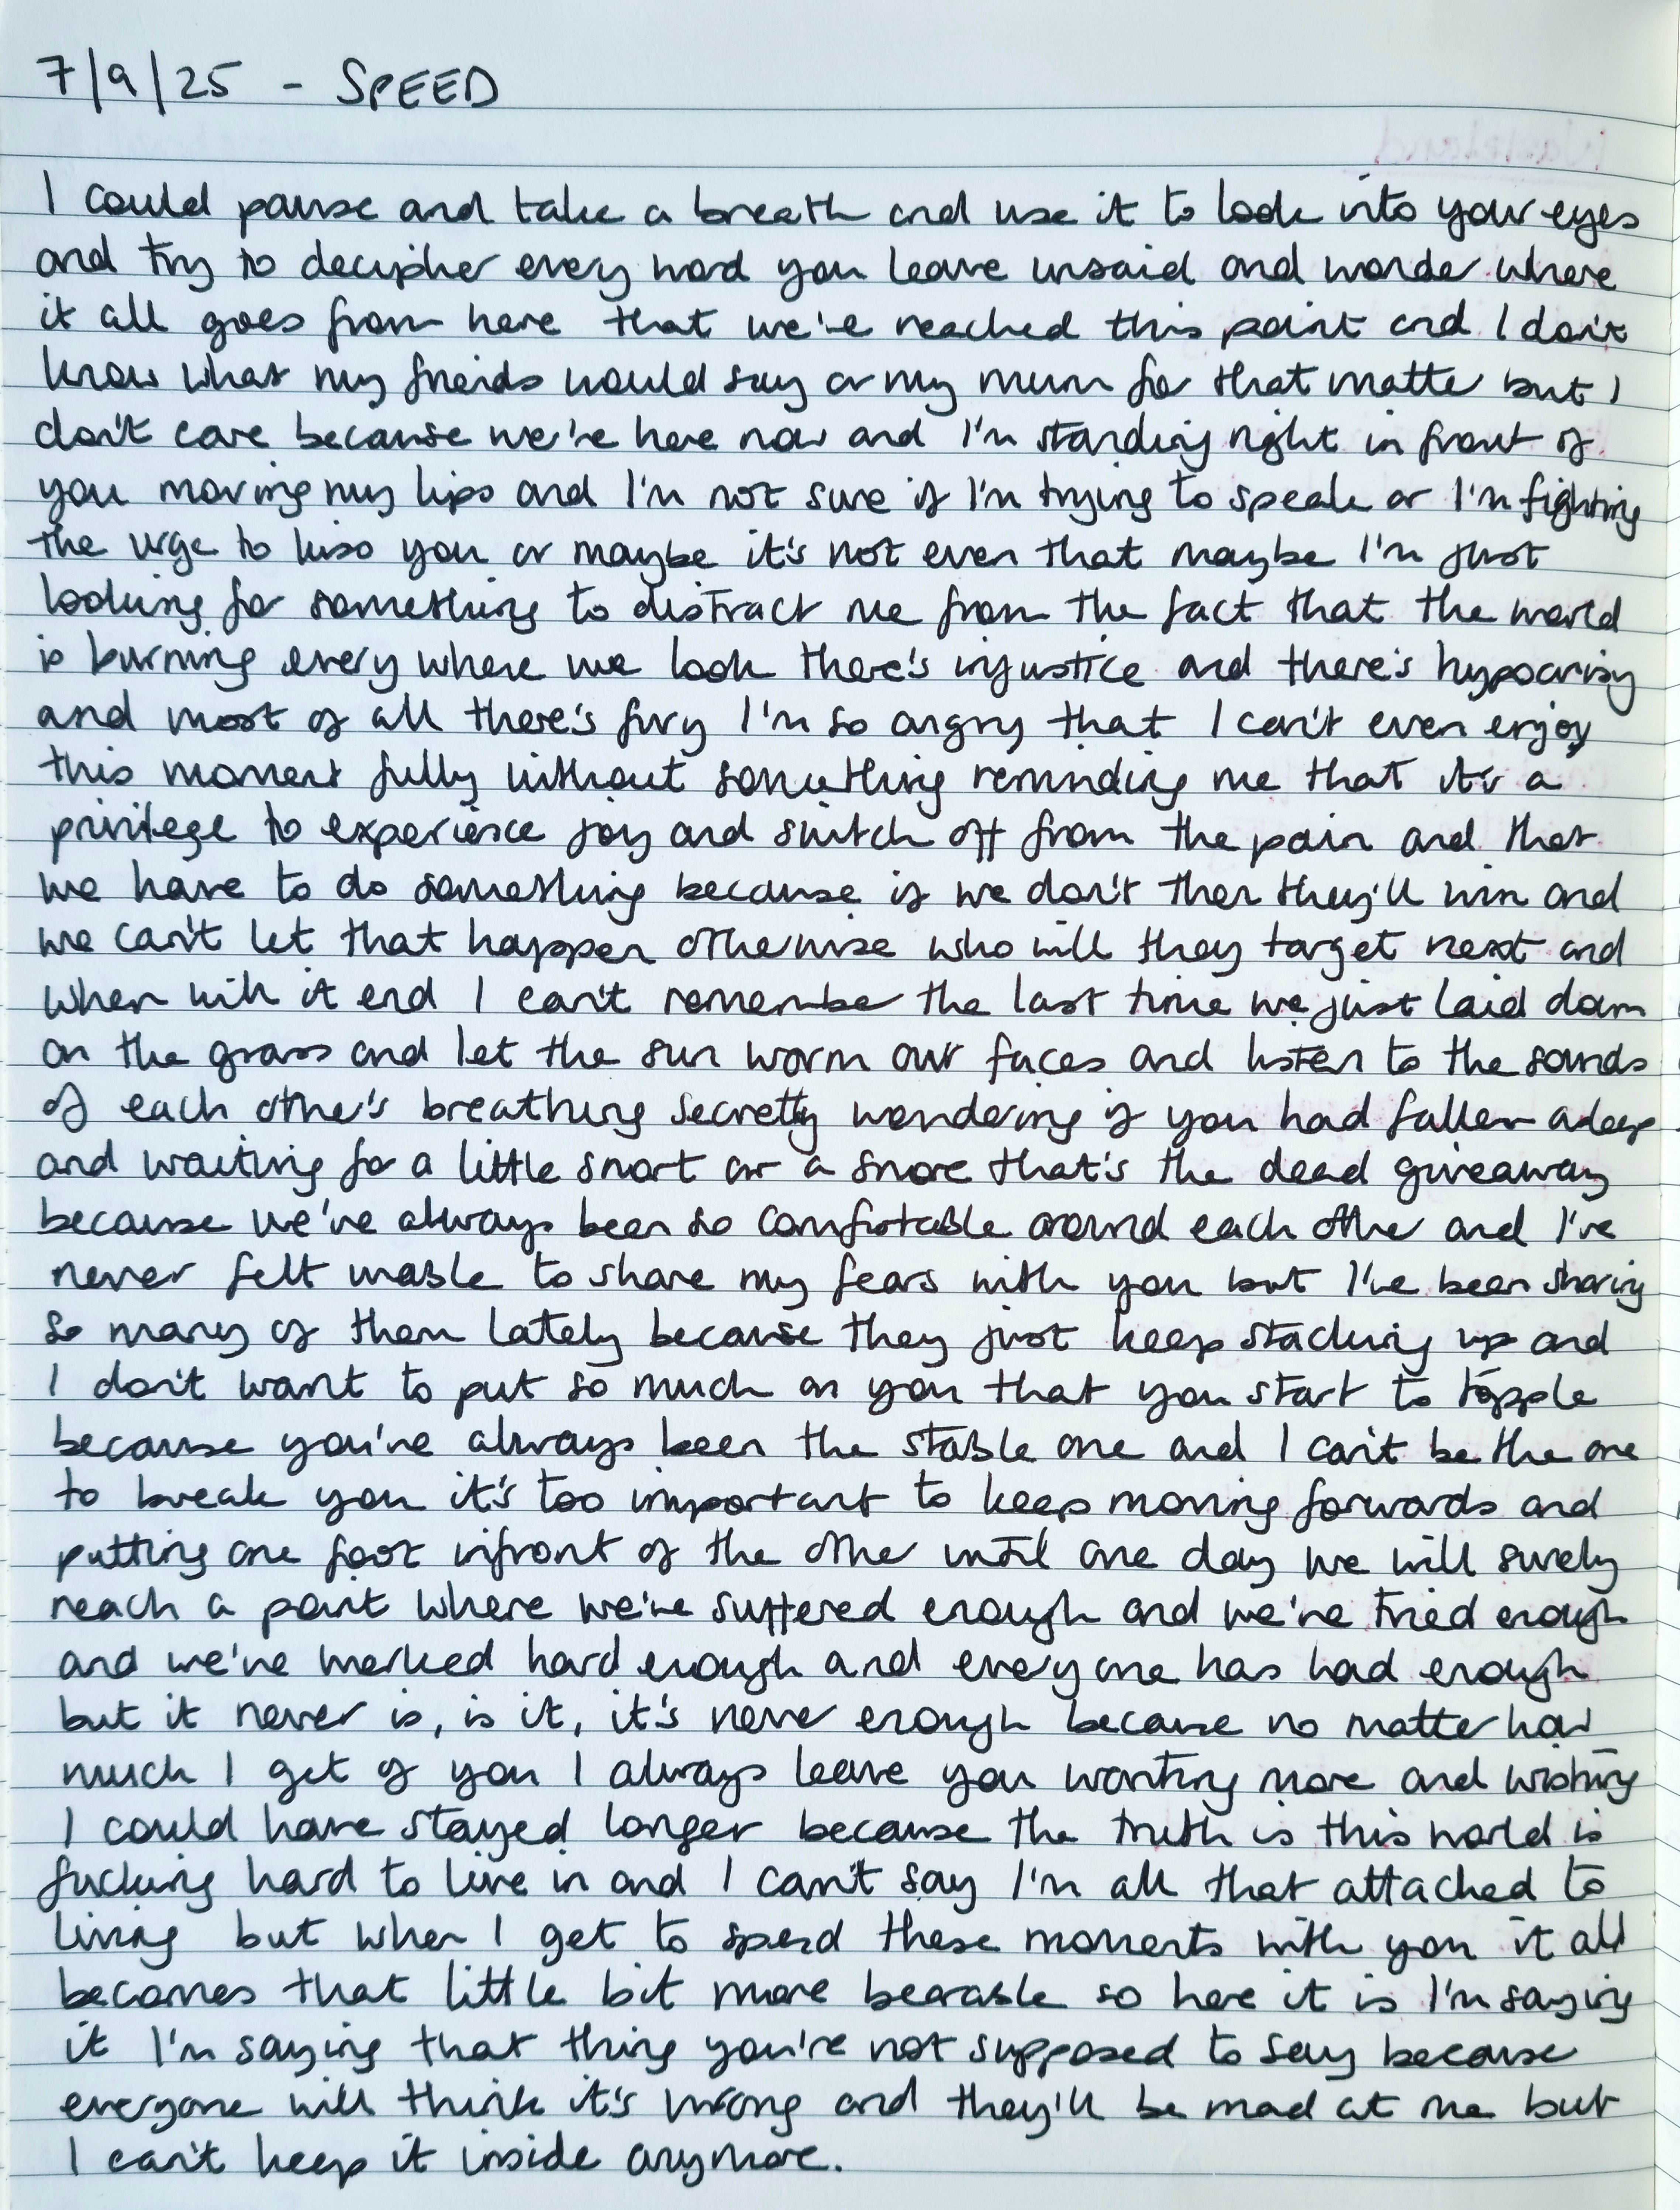 7/9/25 - SPEED
I could pause and take a breath and use it to look into your eyes
and try to decipher every word you leave unsaid and wonder where
it all goes from here that we've reached this point and I don't
know what my friends would say or my mum for that matter but I
don't care because we're here now and I'm standing right in front of
you moving my lips and I'm not sure if I'm trying to speak or I'm fighting
the urge to kiss you or maybe it's not even that maybe I'm just
looking for something to distract me from the fact that the world
is burning every where we look there's injustice and there's hypocrisy
and most of all there's fury I'm so angry that I can't even enjoy
this moment fully without something reminding me that it's a
privilege to experience joy and switch off from the pain and that
we have to do something because if we don't then they'll win and
we can't let that happen otherwise who will they target next and
when will it end I can't remember the last time we just laid down
on the grass and let the sun warm our faces and listen to the sounds
of each other's breathing secretly wondering if you had fallen asleep
and waiting for a little snort or a snore that's the dead giveaway
because we've always been so comfortable around each other and I've
never felt unable to share my fears with you but I've been sharing
so many of them lately because they just keep stacking up and
I don't want to put so much on you that you start to topple
because you've always been the stable one and I can't be the one
to break you it's too important to keep moving forwards and
putting one foot infront of the other until one day we will surely
reach a point where we've suffered enough and we've tried enough
and we've worked hard enough and everyone has had enough
but it never is, is it, it's never enough because no matter how
much I get of you I always leave you wanting more and wishing
I could have stayed longer because the truth is this world is
fucking hard to live in and I can't say I'm all that attached to
living but when I get to spend these moments with you it all
becomes that little bit more bearable so here it is I'm saying
it I'm saying that thing you're not supposed to say because
everyone will think it's wrong and they'll be mad at me but
I can't keep it inside anymore.